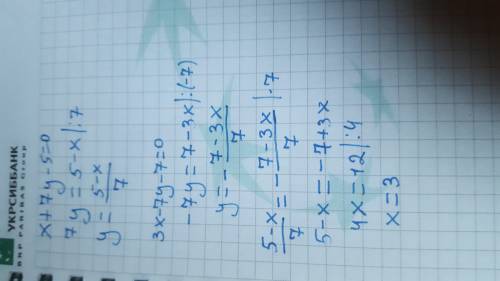 УКРСИББАНК
BNP PARIBAS GROUP
x+7y-5=0
7y=5-x|:7
y=5-x/7
3x-7y-7=0
-7y=7-3x|:(-7)
y=-7-3x/7
5-x/7=-7-3x/7|·7
5-x=-7+3x
4x=12|:4
x=3